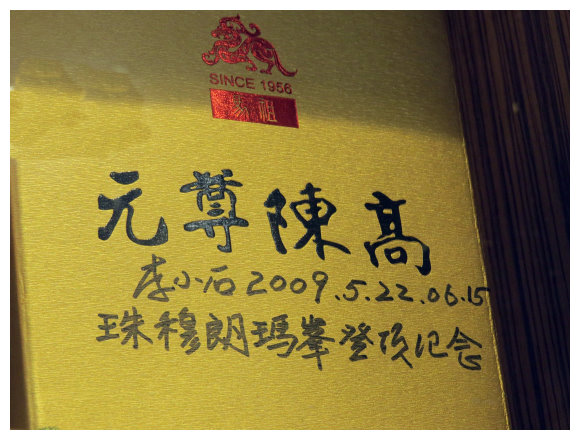 SINCE 1956
易祖
元尊陳高
李小石2009.5.22.06.15
珠穆朗瑪峯登顶记念